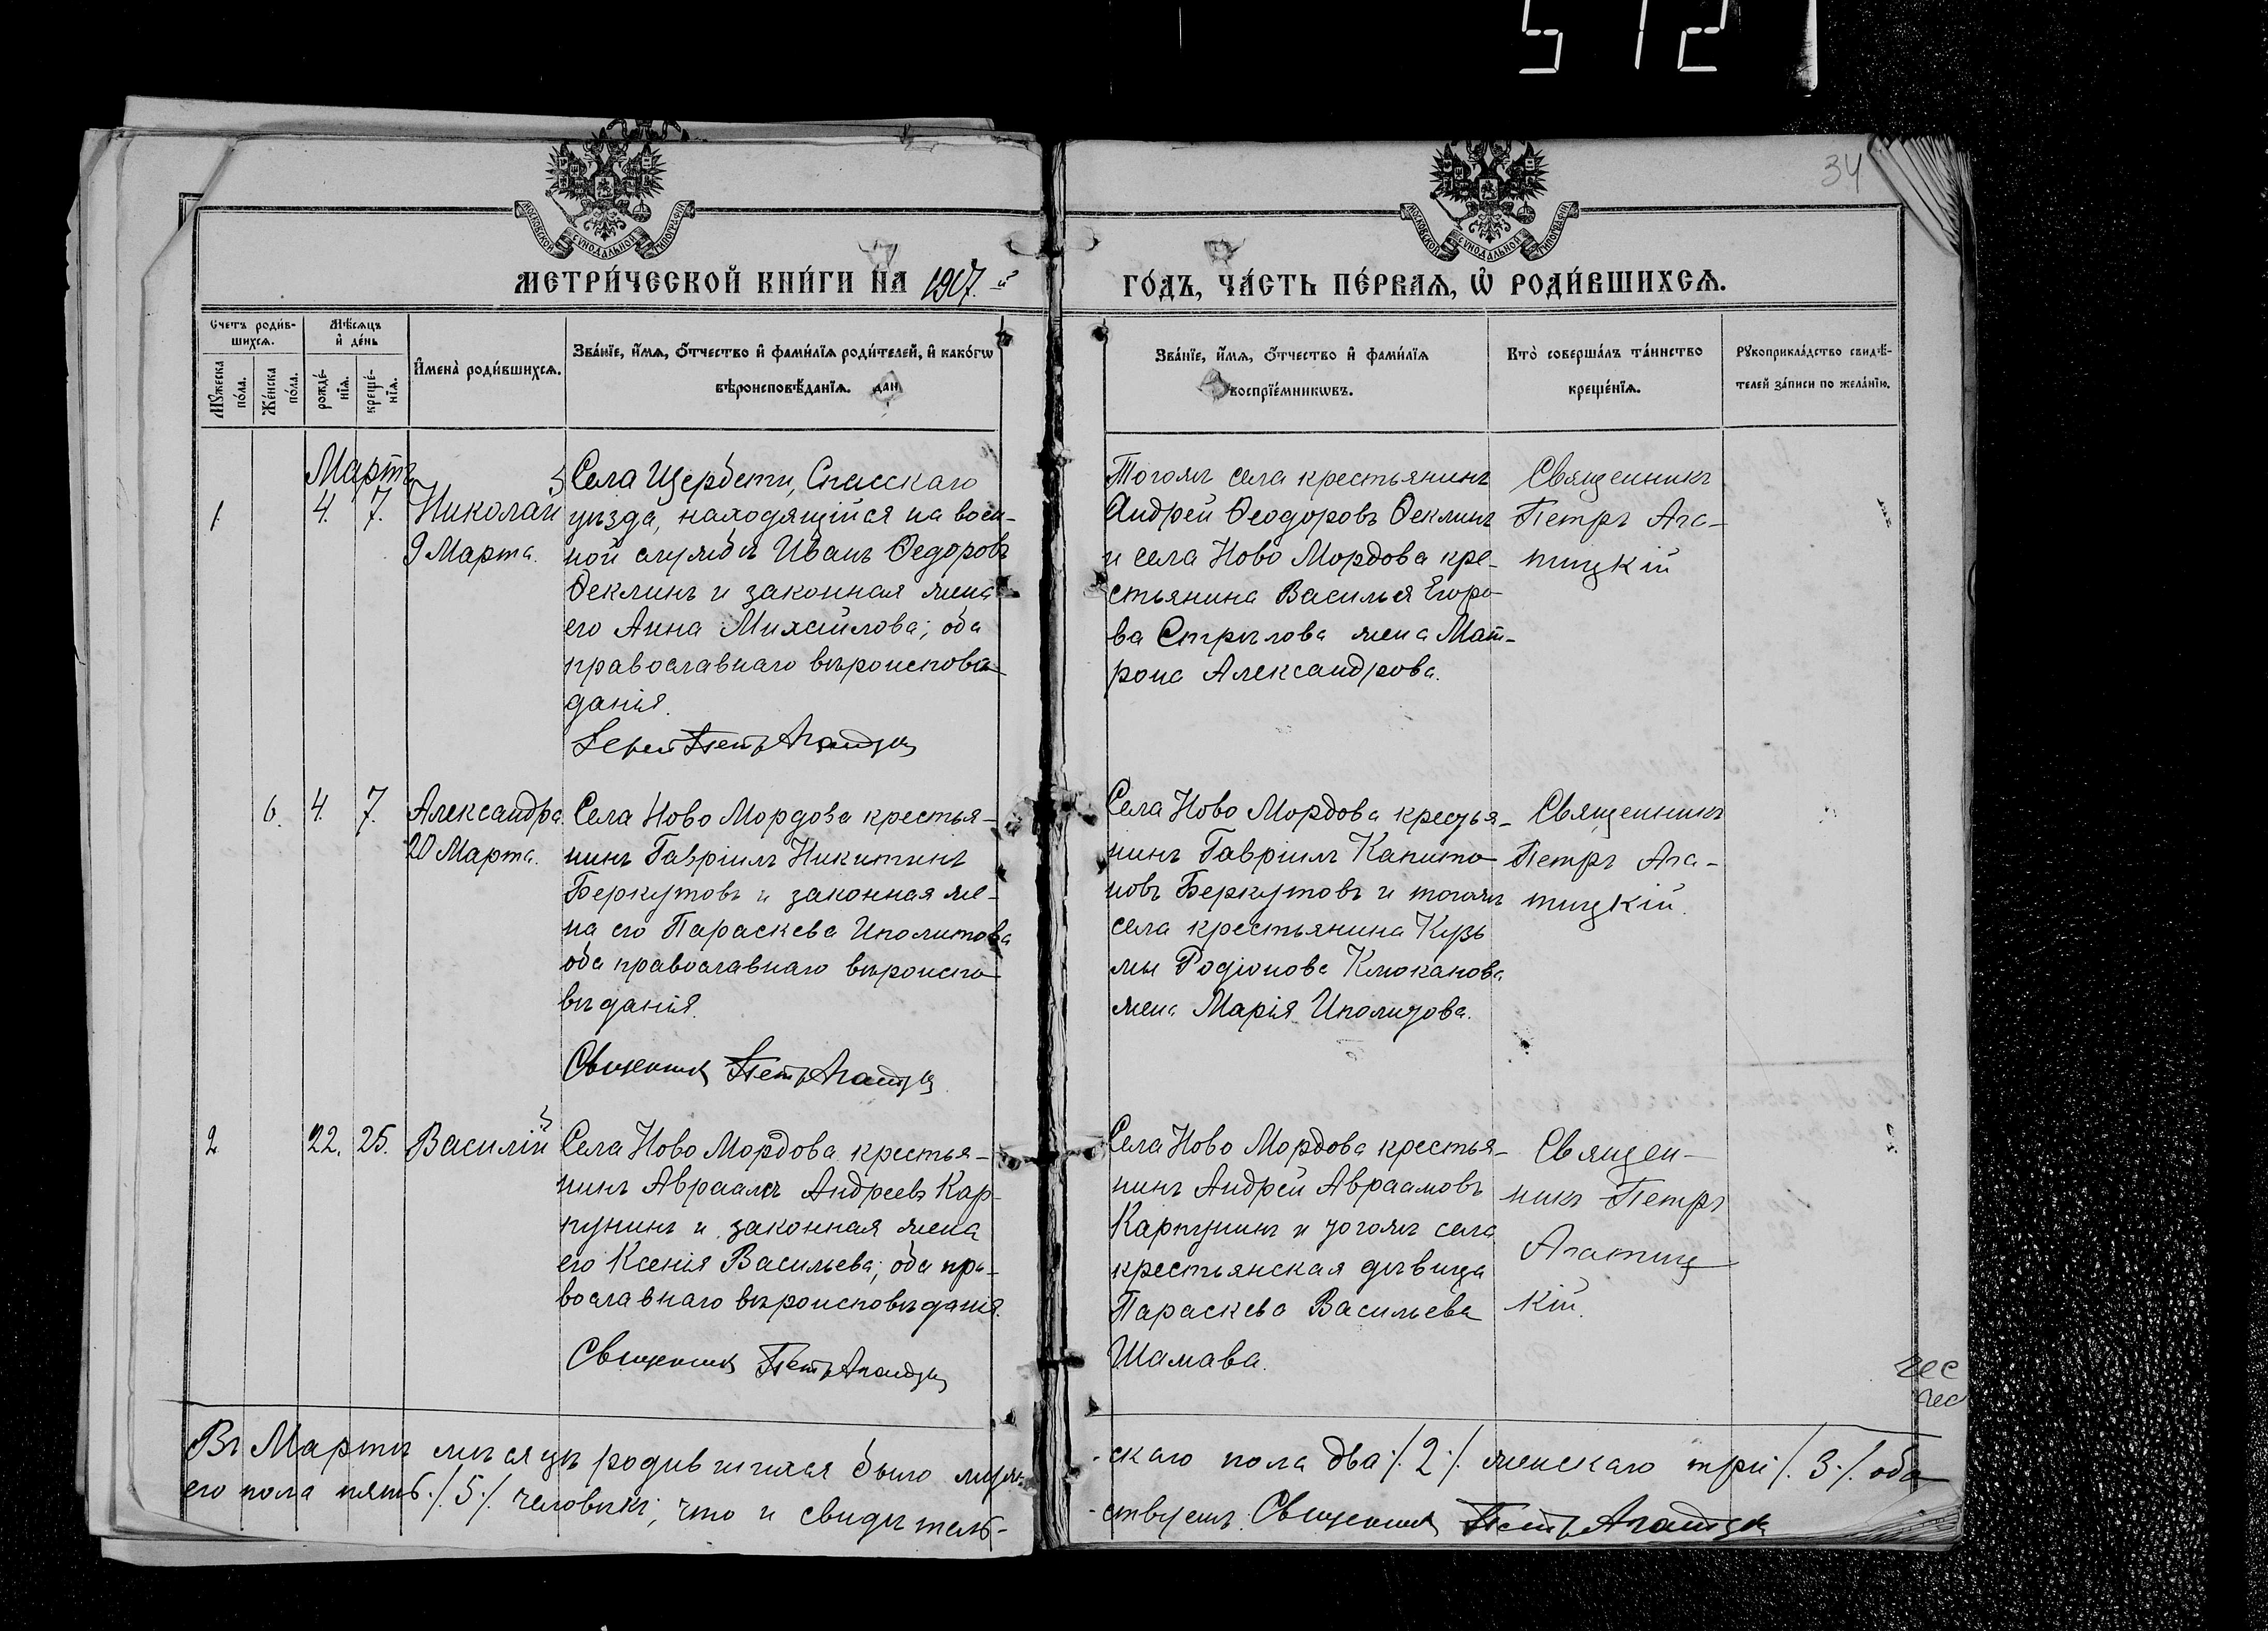 5121
34
МОСКОВСКОЙ СѴНОДАЛЬНОЙ ТИПОГРАФІИ
МОСКОВСКОЙ СѴНОДАЛЬНОЙ ТИПОГРАФІИ
МЕТРИ́ЧЕСКОЙ КНИ́ГИ НА 1917.-й
ГО́ДЪ, ЧА́СТЬ ПЕ́РВАѦ, Ѡ҆ РОДИ́ВШИХСѦ.
Счетъ роди́в-
шихсѧ.
Мѣ́сѧцъ
и҆ де́нь
Мꙋ́жеска
по́ла.
Же́нска
по́ла.
рожде́-
нїѧ.
креще́-
нїѧ.
И҆мена̀ роди́вшихсѧ.
Зва́нїе, и҆́мѧ, ѻ҆́тчество и҆ фами́лїѧ роди́телей, и҆ како́гѡ
вѣроисповѣ́данїѧ.
Зва́нїе, и҆́мѧ, ѻ҆́тчество и҆ фами́лїѧ
воспрїе́мникѡвъ.
Кто̀ соверша́лъ та́инство
креще́нїѧ.
Рꙋкоприкла́дство свидѣ́-
телей за́писи по жела́нїю.
Мартъ
1. 4. 7. Николай
9 Марта.
Села Щербети, Спасскаго
уѣзда, находящійся на воен-
ной службѣ Иванъ Ѳедоровъ
Ѳеклинъ и законная жена
его Анна Михайлова; оба
православнаго вѣроисповѣ-
данія.
Іерей Петръ Агатицкій
Тогожъ села крестьянинъ
Андрей Ѳеодоровъ Ѳеклинъ
и села Ново Мордова кре-
стьянина Василья Егоро-
ва Стрѣлова жена Мат-
рона Александрова.
Священникъ
Петръ Ага-
тицкій
6. 4. 7. Александра.
20 Марта.
Села Ново Мордова крестья-
нинъ Гавріилъ Никитинъ
Беркутовъ и законная же-
на его Параскева Иполитова
оба православнаго вѣроиспо-
вѣданія.
Священникъ Петръ Агатицкій
Села Ново Мордова крестья-
нинъ Гавріилъ Капито-
новъ Беркутовъ и тогожъ
села крестьянина Кузь
мы Родіонова Клюканова
жена Марія Иполитова.
Священникъ
Петръ Ага-
тицкій.
2 22. 25. Василій
Села Ново Мордова крестья-
нинъ Авраамъ Андреевъ Кар-
пунинъ и законная жена
его Ксенія Васильева; оба пра-
вославнаго вѣроисповѣданія.
Священникъ Петръ Агатицкій
Села Ново Мордова крестья-
нинъ Андрей Авраамовъ
Карпунинъ и тогожъ села
крестьянская дѣвица
Параскева Васильева
Шамава.
Священ-
никъ Петръ
Агатиц
кій.
Въ Мартѣ мѣсяцѣ родившихся было муж-
-скаго пола два ·/. 2 ·/. женскаго три ·/. 3 ·/. обо
его пола пять ·/. 5 ·/. человѣкъ; что и свидѣтель-
-ствуемъ. Священникъ Петръ Агатицкій